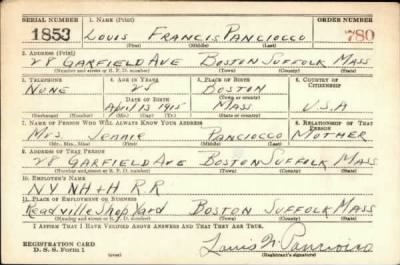 SERIAL NUMBER 1. NAME (Print) ORDER NUMBER
1853 LOUIS FRANCIS PANCIOCCO 780
(First) (Middle) (Last)
2. ADDRESS (Print)
28 GARFIELD AVE BOSTON SUFFOLK MASS
(Number and street or R. F. D. number) (Town) (County) (State)
3. TELEPHONE 4. AGE IN YEARS 5. PLACE OF BIRTH 6. COUNTRY OF CITIZENSHIP
NONE 25 BOSTON
DATE OF BIRTH (Town or county)
April 13 1915 MASS U.S.A
(Exchange) (Number) (Mo.) (Day) (Yr.) (State or country)
7. NAME OF PERSON WHO WILL ALWAYS KNOW YOUR ADDRESS 8. RELATIONSHIP OF THAT PERSON
MRS. Jennie PANCIOCCO MOTHER
(Mr., Mrs., Miss) (First) (Middle) (Last)
9. ADDRESS OF THAT PERSON
28 GARFIELD AVE BOSTON SUFFOLK MASS
(Number and street or R. F. D. number) (Town) (County) (State)
10. EMPLOYER'S NAME
NY NH + H R.R
11. PLACE OF EMPLOYMENT OR BUSINESS
Readville Shop Yard BOSTON SUFFOLK MASS
(Number and street or R. F. D. number) (Town) (County) (State)
I AFFIRM THAT I HAVE VERIFIED ABOVE ANSWERS AND THAT THEY ARE TRUE.
REGISTRATION CARD
D. S. S. Form 1 (over) Louis F. Panciocco
(Registrant's signature)